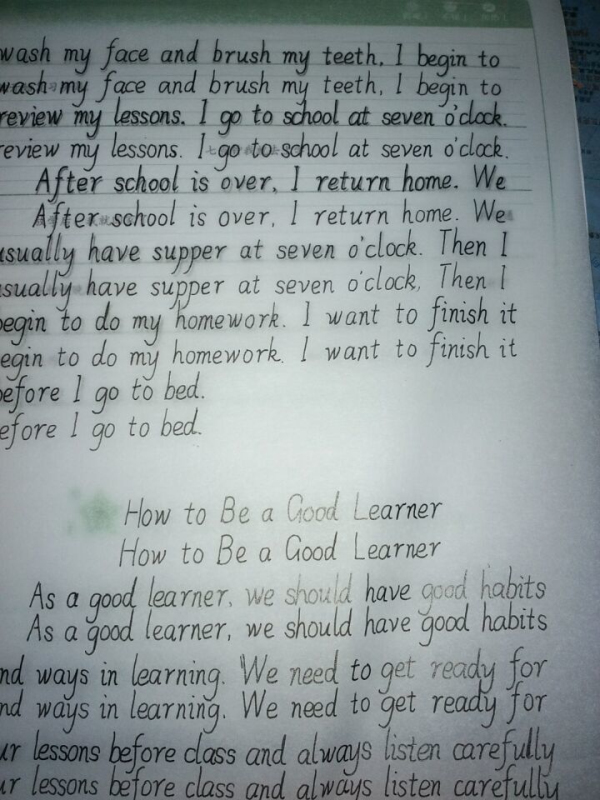 wash my face and brush my teeth. I begin to
wash my face and brush my teeth, I begin to
review my lessons. I go to school at seven o'clock.
review my lessons. I go to school at seven o'clock.
After school is over, I return home. We
After school is over, I return home. We
usually have supper at seven o'clock. Then I
usually have supper at seven o'clock, Then I
begin to do my homework. I want to finish it
egin to do my homework. I want to finish it
before I go to bed.
efore I go to bed.
How to Be a Good Learner
How to Be a Good Learner
As a good learner, we should have good habits
As a good learner, we should have good habits
nd ways in learning. We need to get ready for
nd ways in learning. We need to get ready for
ur lessons before class and always listen carefully
ur lessons before class and always listen carefully